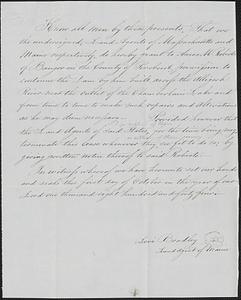 Know all men by these presents, That we
the undersigned, Land Agents of Massachusetts and
Maine respectively, do hereby grant to Amos M. Roberts
of Bangor in the County of Penobscot, permission to
continue the Dam by him built across the
River near the outlet of the Chamberlain Lake and
from time to time to make such repairs and Alterations
as he may deem necessary. Provided however that
the Land Agents of said States, for the time being may
terminate this lease whenever they see fit to do so, by
giving written notice thereof to said Roberts.
In witness whereof we have hereunto set our hands
and seals this first day of October in the year of our
Lord one thousand eight hundred and forty four.
Levi Bradley
Land Agent of Maine